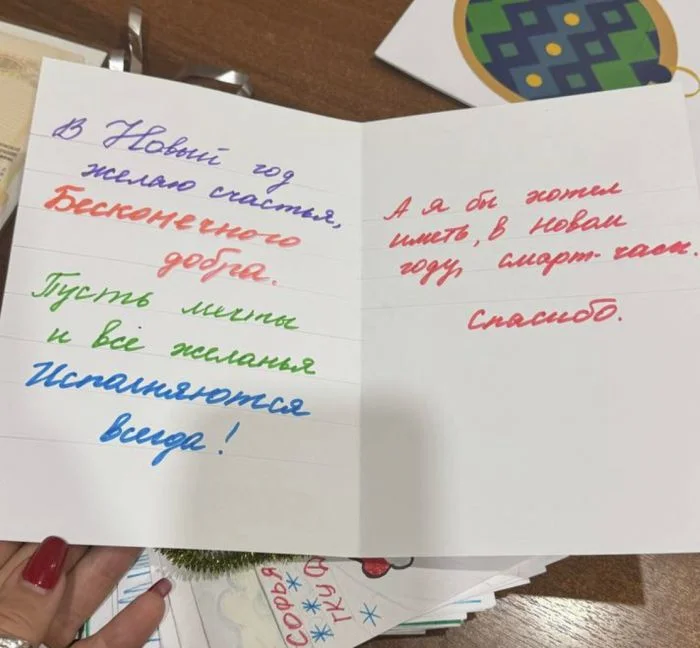 В Новый год
желаю счастья,
Бесконечного
добра.
Пусть мечты
и всё желанья
Исполняются
всегда!
А я бы хотел
иметь, в новом
году, смарт-часы.
Спасибо.
СОФЬЯ